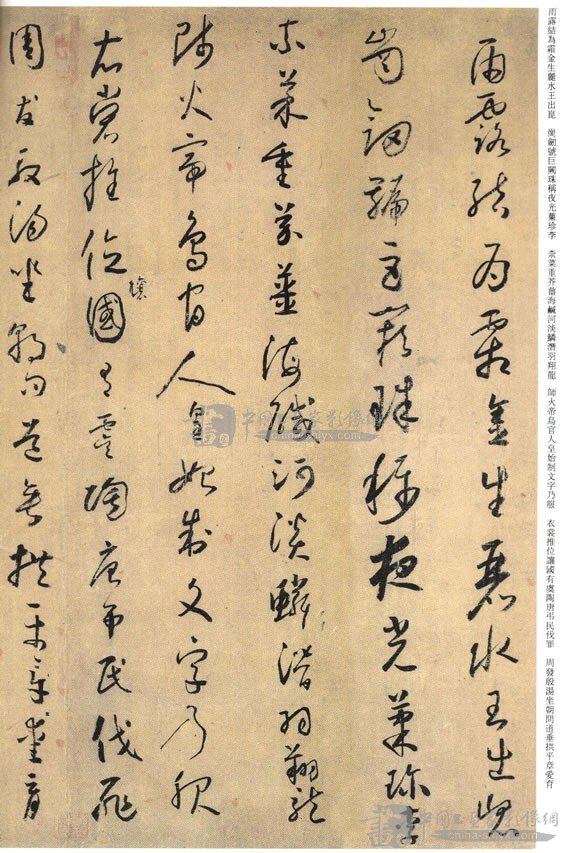 雨露結為霜金生麗水王出崑 崗劍號巨闕珠稱夜光菓珍李 柰菜重芥薑海鹹河淡鱗潛羽翔龍 師火帝鳥官人皇始制文字乃服 衣裳推位讓國有虞陶唐弔民伐罪 周發殷湯坐朝問道垂拱平章愛育
雨露結為霜金生麗水玉出崑
崗劍號巨闕珠稱夜光菓珍李
柰菜重芥薑海鹹河淡鱗潛羽翔龍
師火帝鳥官人皇始制文字乃服
衣裳推位國有虞陶唐弔民伐罪
讓
周發殷湯坐朝問道垂拱平章愛育